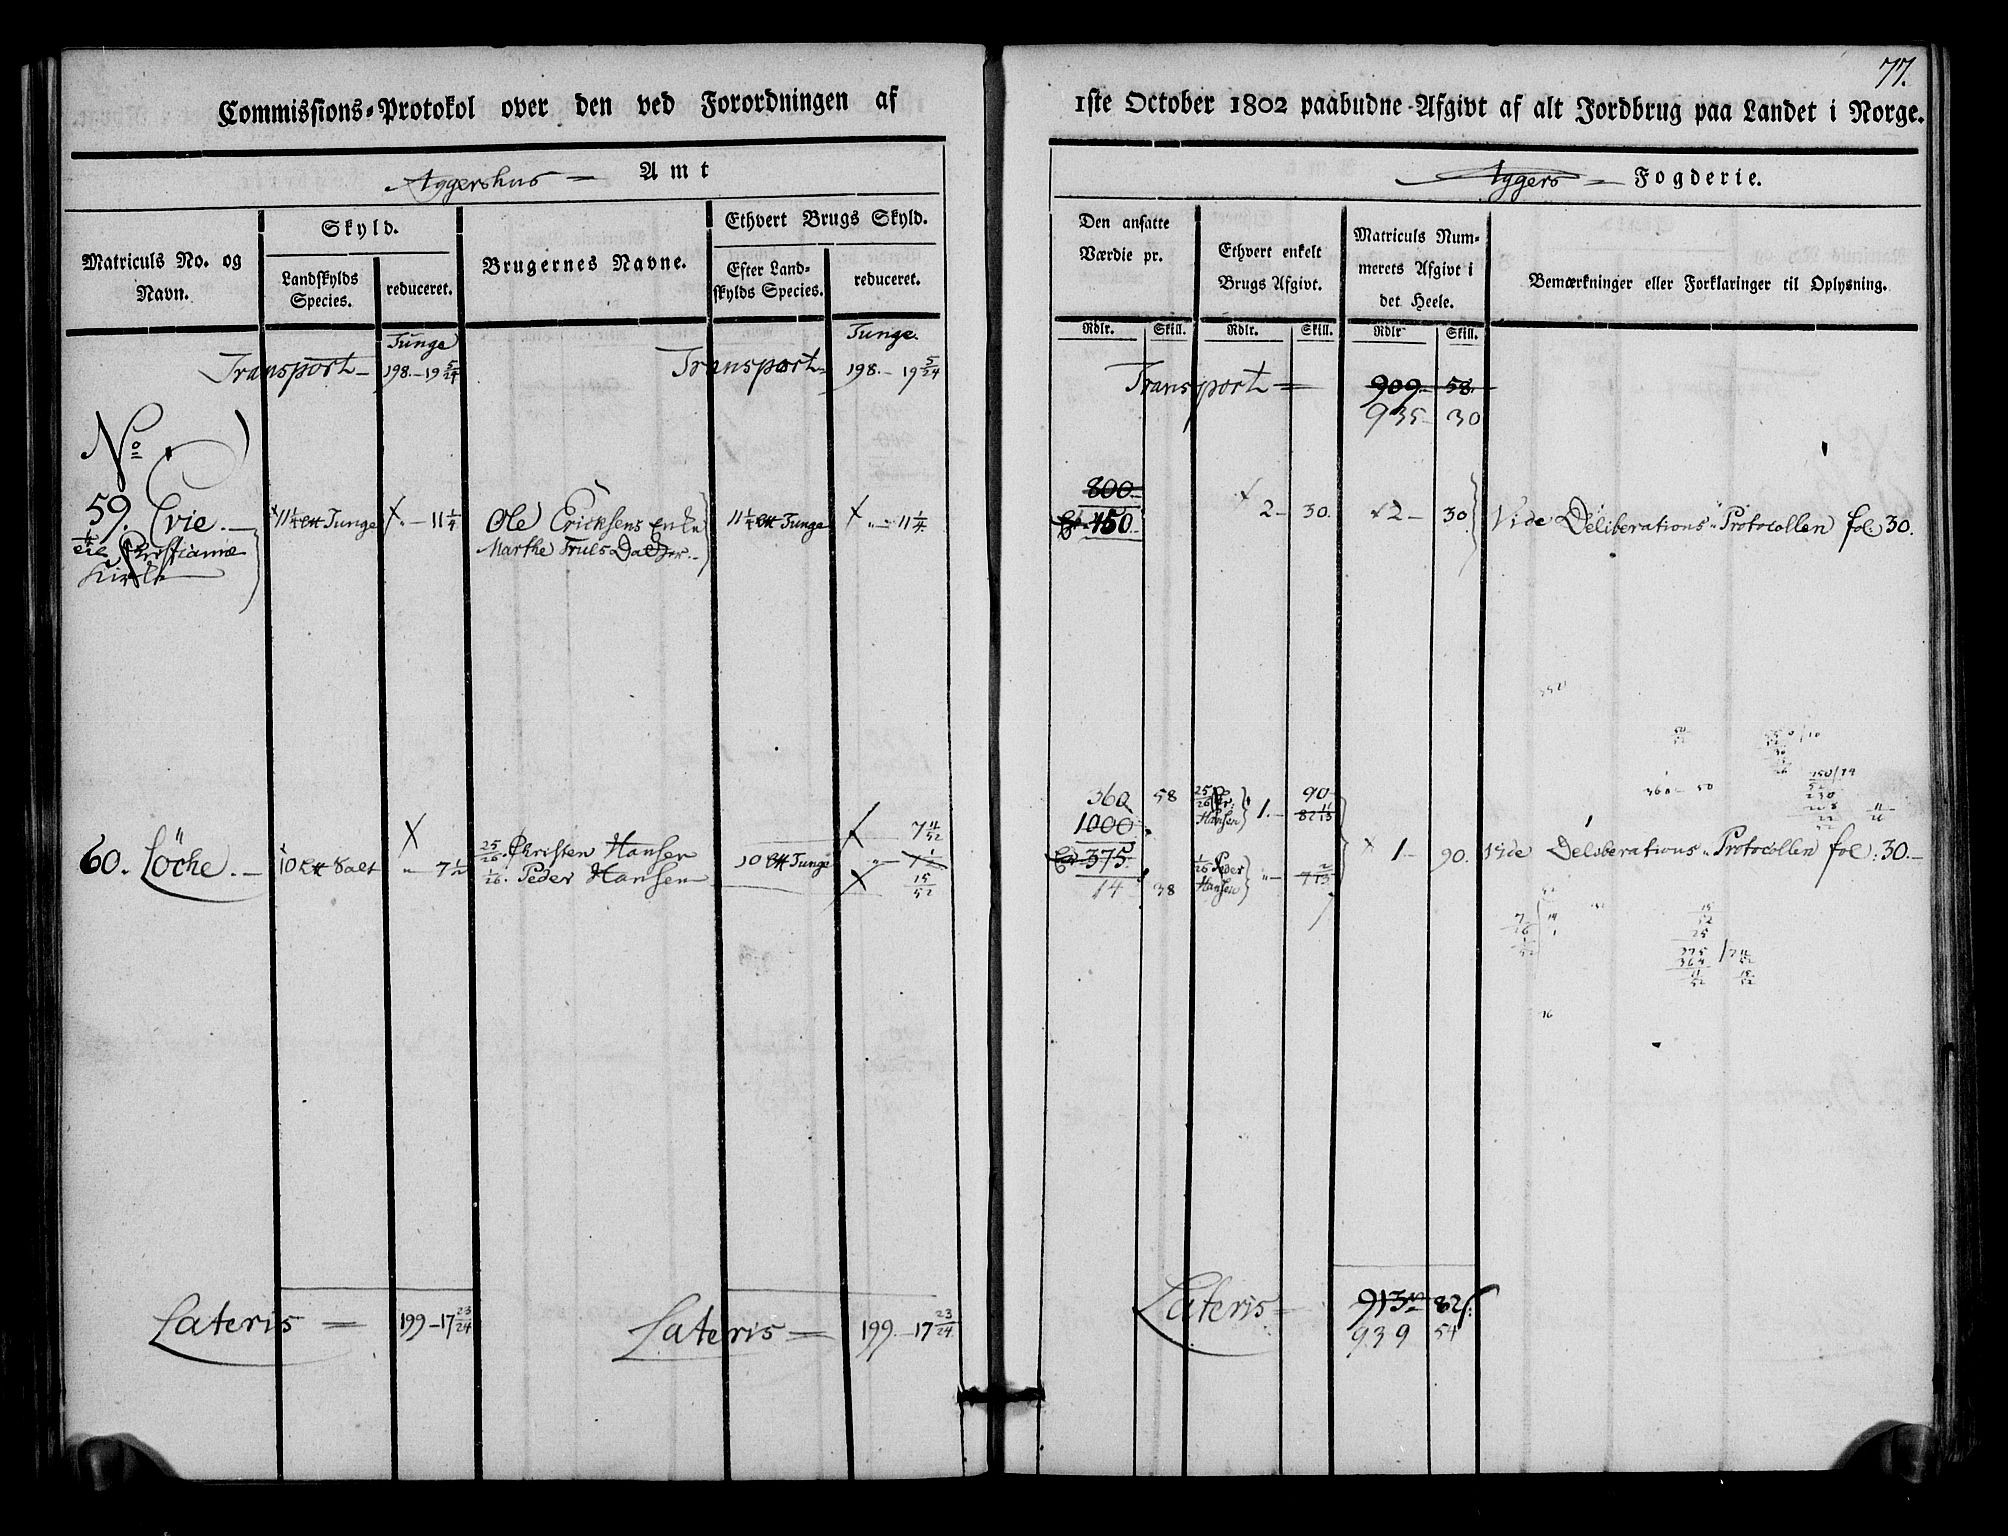 77.
Commissions-Protokol over den ved Forordningen af 1ste October 1802 paabudne Afgivt af alt Jordbrug paa Landet i Norge.
Aggershus Amt
Aggers Fogderie.
Matriculs No. og Navn.
Skyld.
Landskylds Species.
reduceret.
Brugernes Navne.
Ethvert Brugs Skyld.
Efter Landskylds Species.
reduceret.
Den ansatte Værdie pr.
Ethvert enkelt Brugs Afgivt.
Matriculs Nummerets Afgivt i det Heele.
Bemærkninger eller Forklaringer til Oplysning.
Rdlr. Skill. Rdlr. Skill. Rdlr Skill.
Tunge Tunge.
Transport 198. 19 5/24 Transport 198. 19 5/24 Transport 909 58.
935 30
No
59. Evie. 11 1/4 Tunge 11 1/4 Ole Ericksens Enke 11 1/4 Tunge 11 1/4 800 2 30. 2 30 Vide Deliberations Protocollen fol. 30.
Christianiæ Marthe Truls Datter. 450
Kirke
360 58 25/26 Chr: Hansen 1. 90
82 11/13
7 11/52 1000
60. Löche. 10 Salt 7 1/2 25/26. Christen Hansen 10 Tunge 7 1/2 375. 1 90. Vide Deliberations Protocollen fol: 30.
1/26. Peder Hansen 15/52 14 38 1/26 Peder Hansen 7 2/13
Lateris 199 17 23/24 Lateris 199. 17 23/24 Lateris 913 82
939 54